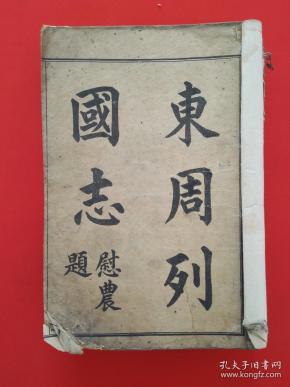 東周列
國志
慰農
題
孔夫子旧书网
kongfz.com